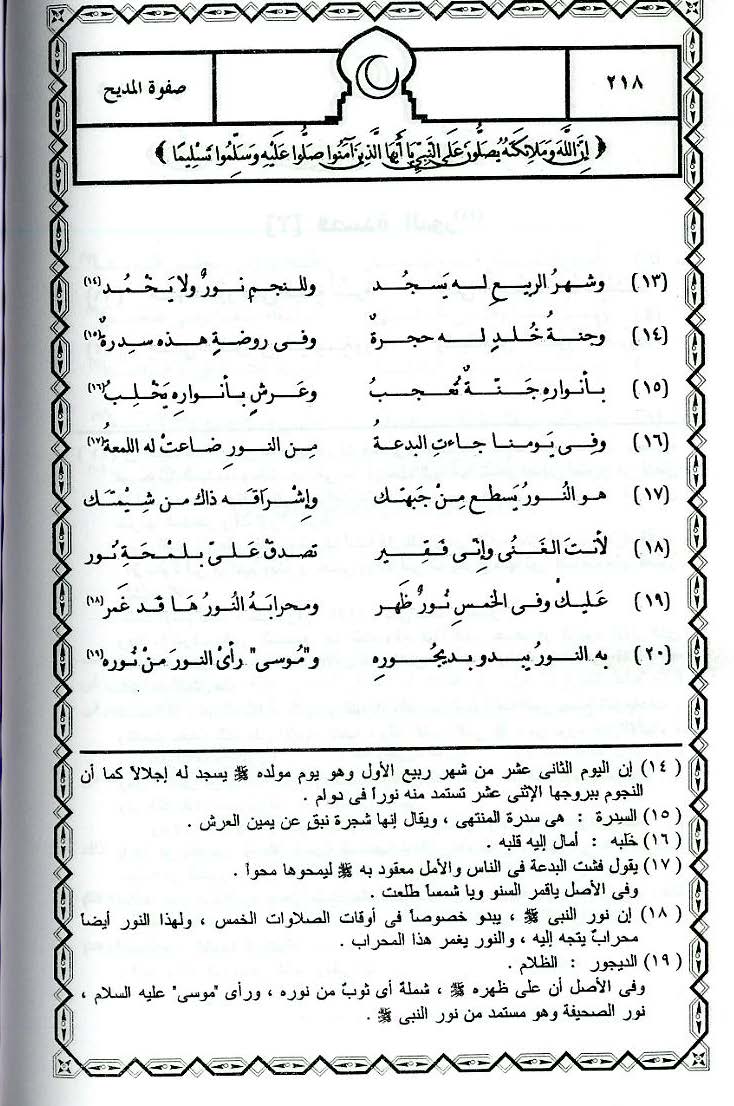 ٢١٨
صفوة المديح
﴿ إِنَّ اللَّهَ وَمَلَائِكَتَهُ يُصَلُّونَ عَلَى النَّبِيِّ يَا أَيُّهَا الَّذِينَ آمَنُوا صَلُّوا عَلَيْهِ وَسَلِّمُوا تَسْلِيمًا ﴾
(١٣) وشهرُ الربيعِ لـه يَسجُـد وللـنجمِ نـورٌ ولا يَـخْـمُـد (١٤)
(١٤) وجنـةُ خُـلدٍ لـه حجرةٌ وفى روضةٍ هـذه سدرةٌ (١٥)
(١٥) بـأنوارهِ جَـنَّـةٌ تُعجـبُ وعَـرشٍ بـأنوارِه يَـخْـلِـبُ (١٦)
(١٦) وفِى يَومنـا جـاءتِ البدعةُ مِـن النـورِ ضاعتْ له اللمعةُ (١٧)
(١٧) هـو النُـورُ يَسطع مِـنْ جَبهتِـك وإِشْـراقَـه ذاك مـن شِـيْمتَـك
(١٨) لأنتَ الغَـنُى وإنّى فَـقِـير تصدقْ عَلـىّ بـلـمْحَـةِ نُـور
(١٩) عَلـيكْ وفى الخمسِ نورٌ ظَهر ومحرابَـهُ النُـورُ هَا قـد غَمر (١٨)
(٢٠) بِه النـورُ يبـدو بـديجُـورِه و"مُوسى" رأىْ النورَ مِنْ نُوره (١٩)
( ١٤ ) إن اليوم الثانى عشر من شهر ربيع الأول وهو يوم مولده ﷺ يسجد له إجلالاً كما أن
النجوم ببروجها الإثنى عشر تستمد منه نوراً فى دوام .
( ١٥ ) السيدرة : هى سدرة المنتهى ، ويقال إنها شجرة نبقٍ عن يمين العرش .
( ١٦ ) خلبه : أمال إليه قلبه .
( ١٧ ) يقول فشت البدعة فى الناس والأمل معقود به ﷺ ليمحوها محواً .
وفى الأصل ياقمر السنو ويا شمساً طلعت .
( ١٨ ) إن نور النبى ﷺ ، يبدو خصوصاً فى أوقات الصلاوات الخمس ، ولهذا النور أيضاً
محرابٌ يتجه إليه ، والنور يغمر هذا المحراب .
( ١٩ ) الديجور : الظلام .
وفى الأصل أن على ظهره ﷺ ، شملة أى ثوبٌ من نوره ، ورأى "موسى" عليه السلام ،
نور الصحيفة وهو مستمد من نور النبى ﷺ .